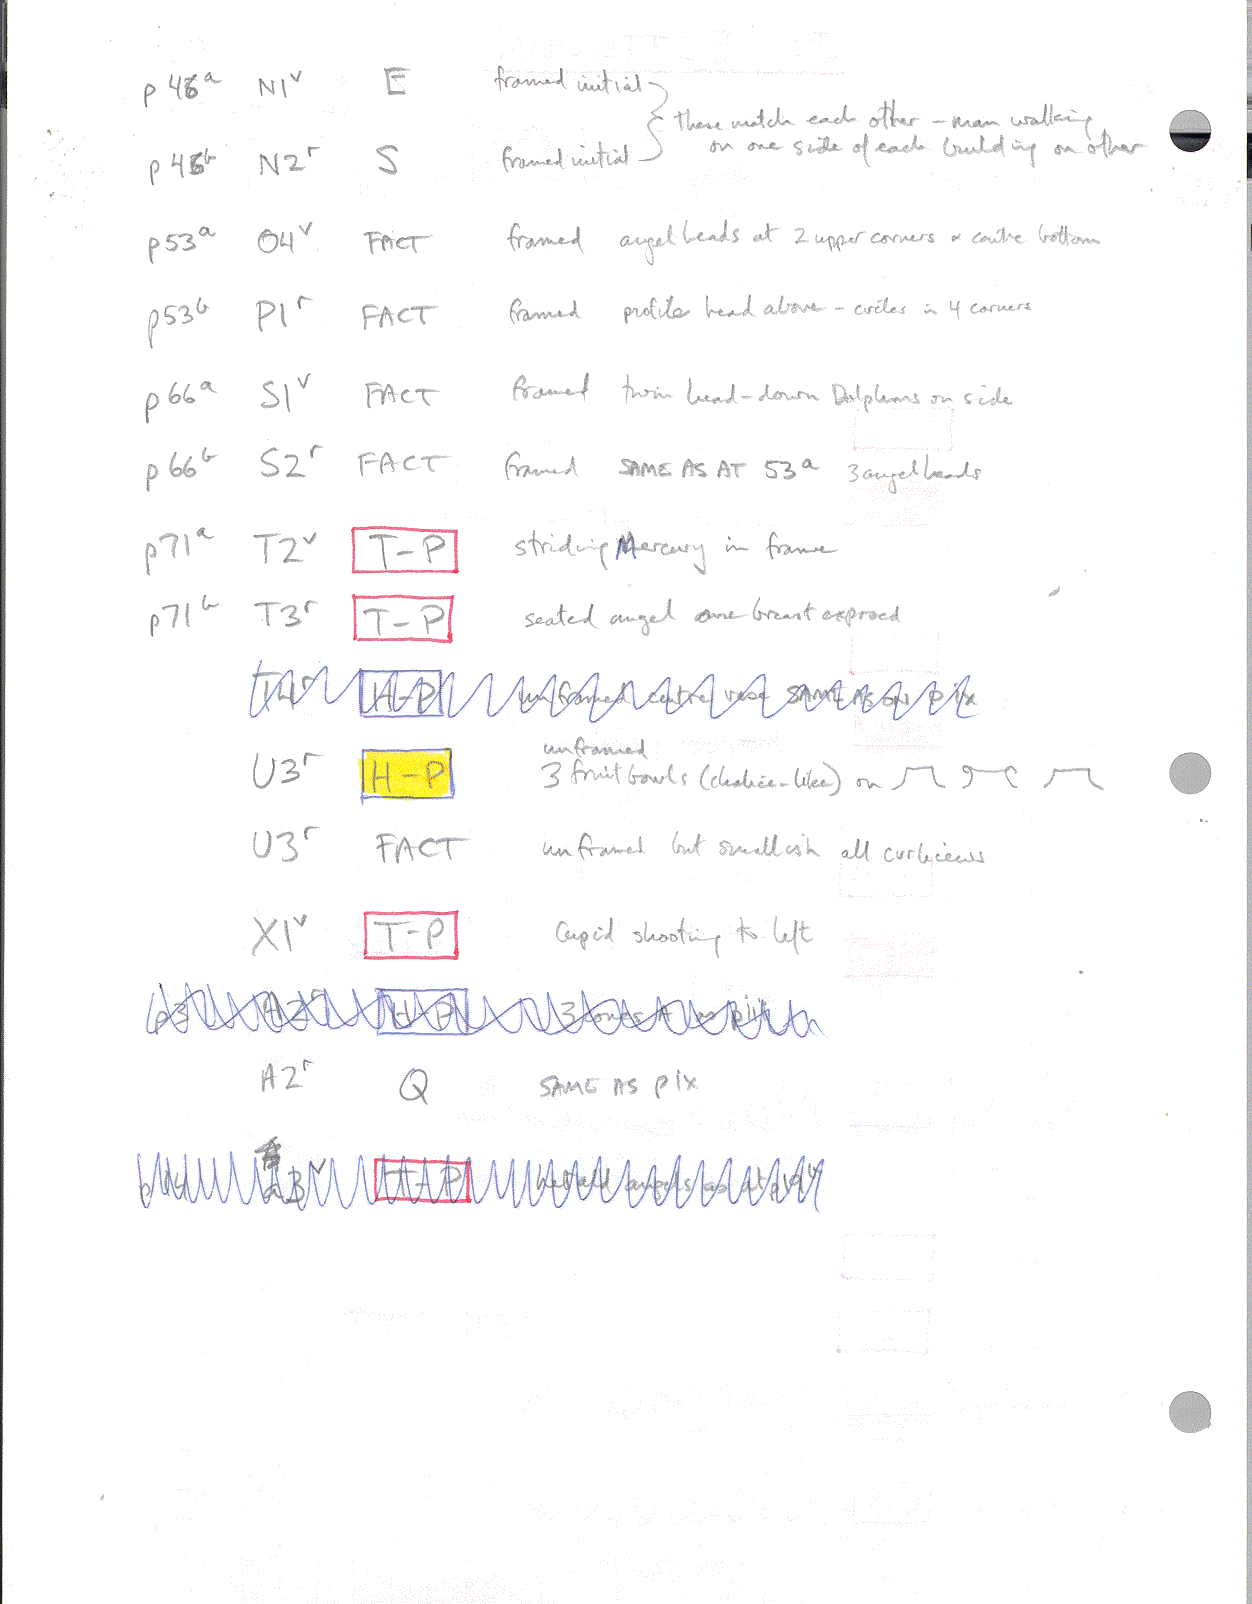 p 46a N1v E framed initial
these match each other – man walking
on one side of each building on other
p 46b N2r S framed initial
p53a O4v FACT framed angel heads at 2 upper corners & centre bottom
p53b P1r FACT framed profile head above – circles in 4 corners
p66a S1v FACT framed twin head-down Dolphins on side
p66b S2r FACT framed SAME AS AT 53a 3 angel heads
p71a T2v T-P striding Mercury in frame
p71b T3r T-P seated angel one breast exposed
T4r H-P unframed centre vase SAME AS ON pix
unframed
U3r H-P 3 fruit bowls (chalice-like) on
U3r FACT unframed but smallish all curlicews
X1v T-P Cupid shooting to left
p3 A2r H-P 3
A2r Q SAME AS pix
3v T-P angels as at